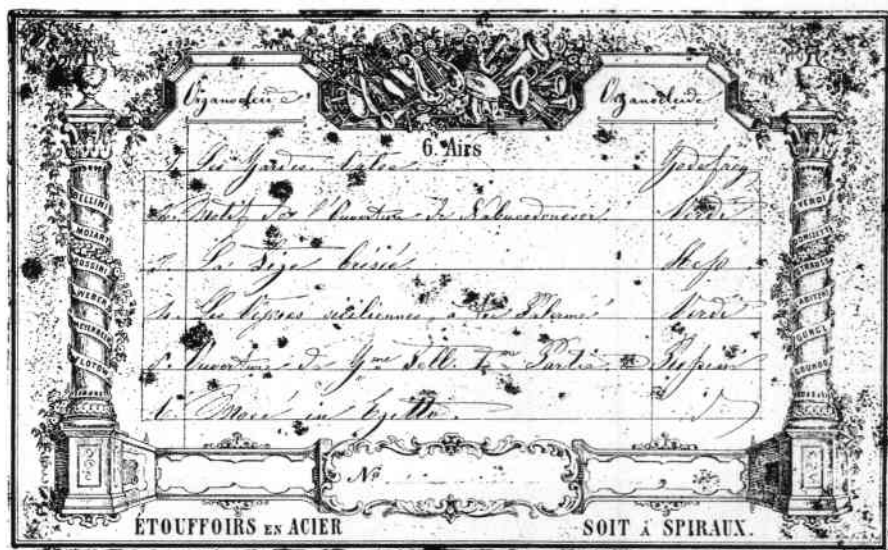 Organocleide Organocleide
6. Airs
1. Les Gardes Godefrey
2. Motif de l'Ouverture de Nabucodonosor Verdi
3. La Tige brisée
4. Les Vêpres siciliennes, à toi Palerme Verdi
5. Ouverture de Gme Tell. Partie Rossini
6. Mosé in Egitto d
BELLINI
MOZART
ROSSINI
WEBER
MEYERBEER
FLOTOW
VERDI
DONIZETTI
STRAUSS
LABITZKY
GUNGL
GOUNOD
No
ÉTOUFFOIRS EN ACIER SOIT À SPIRAUX.